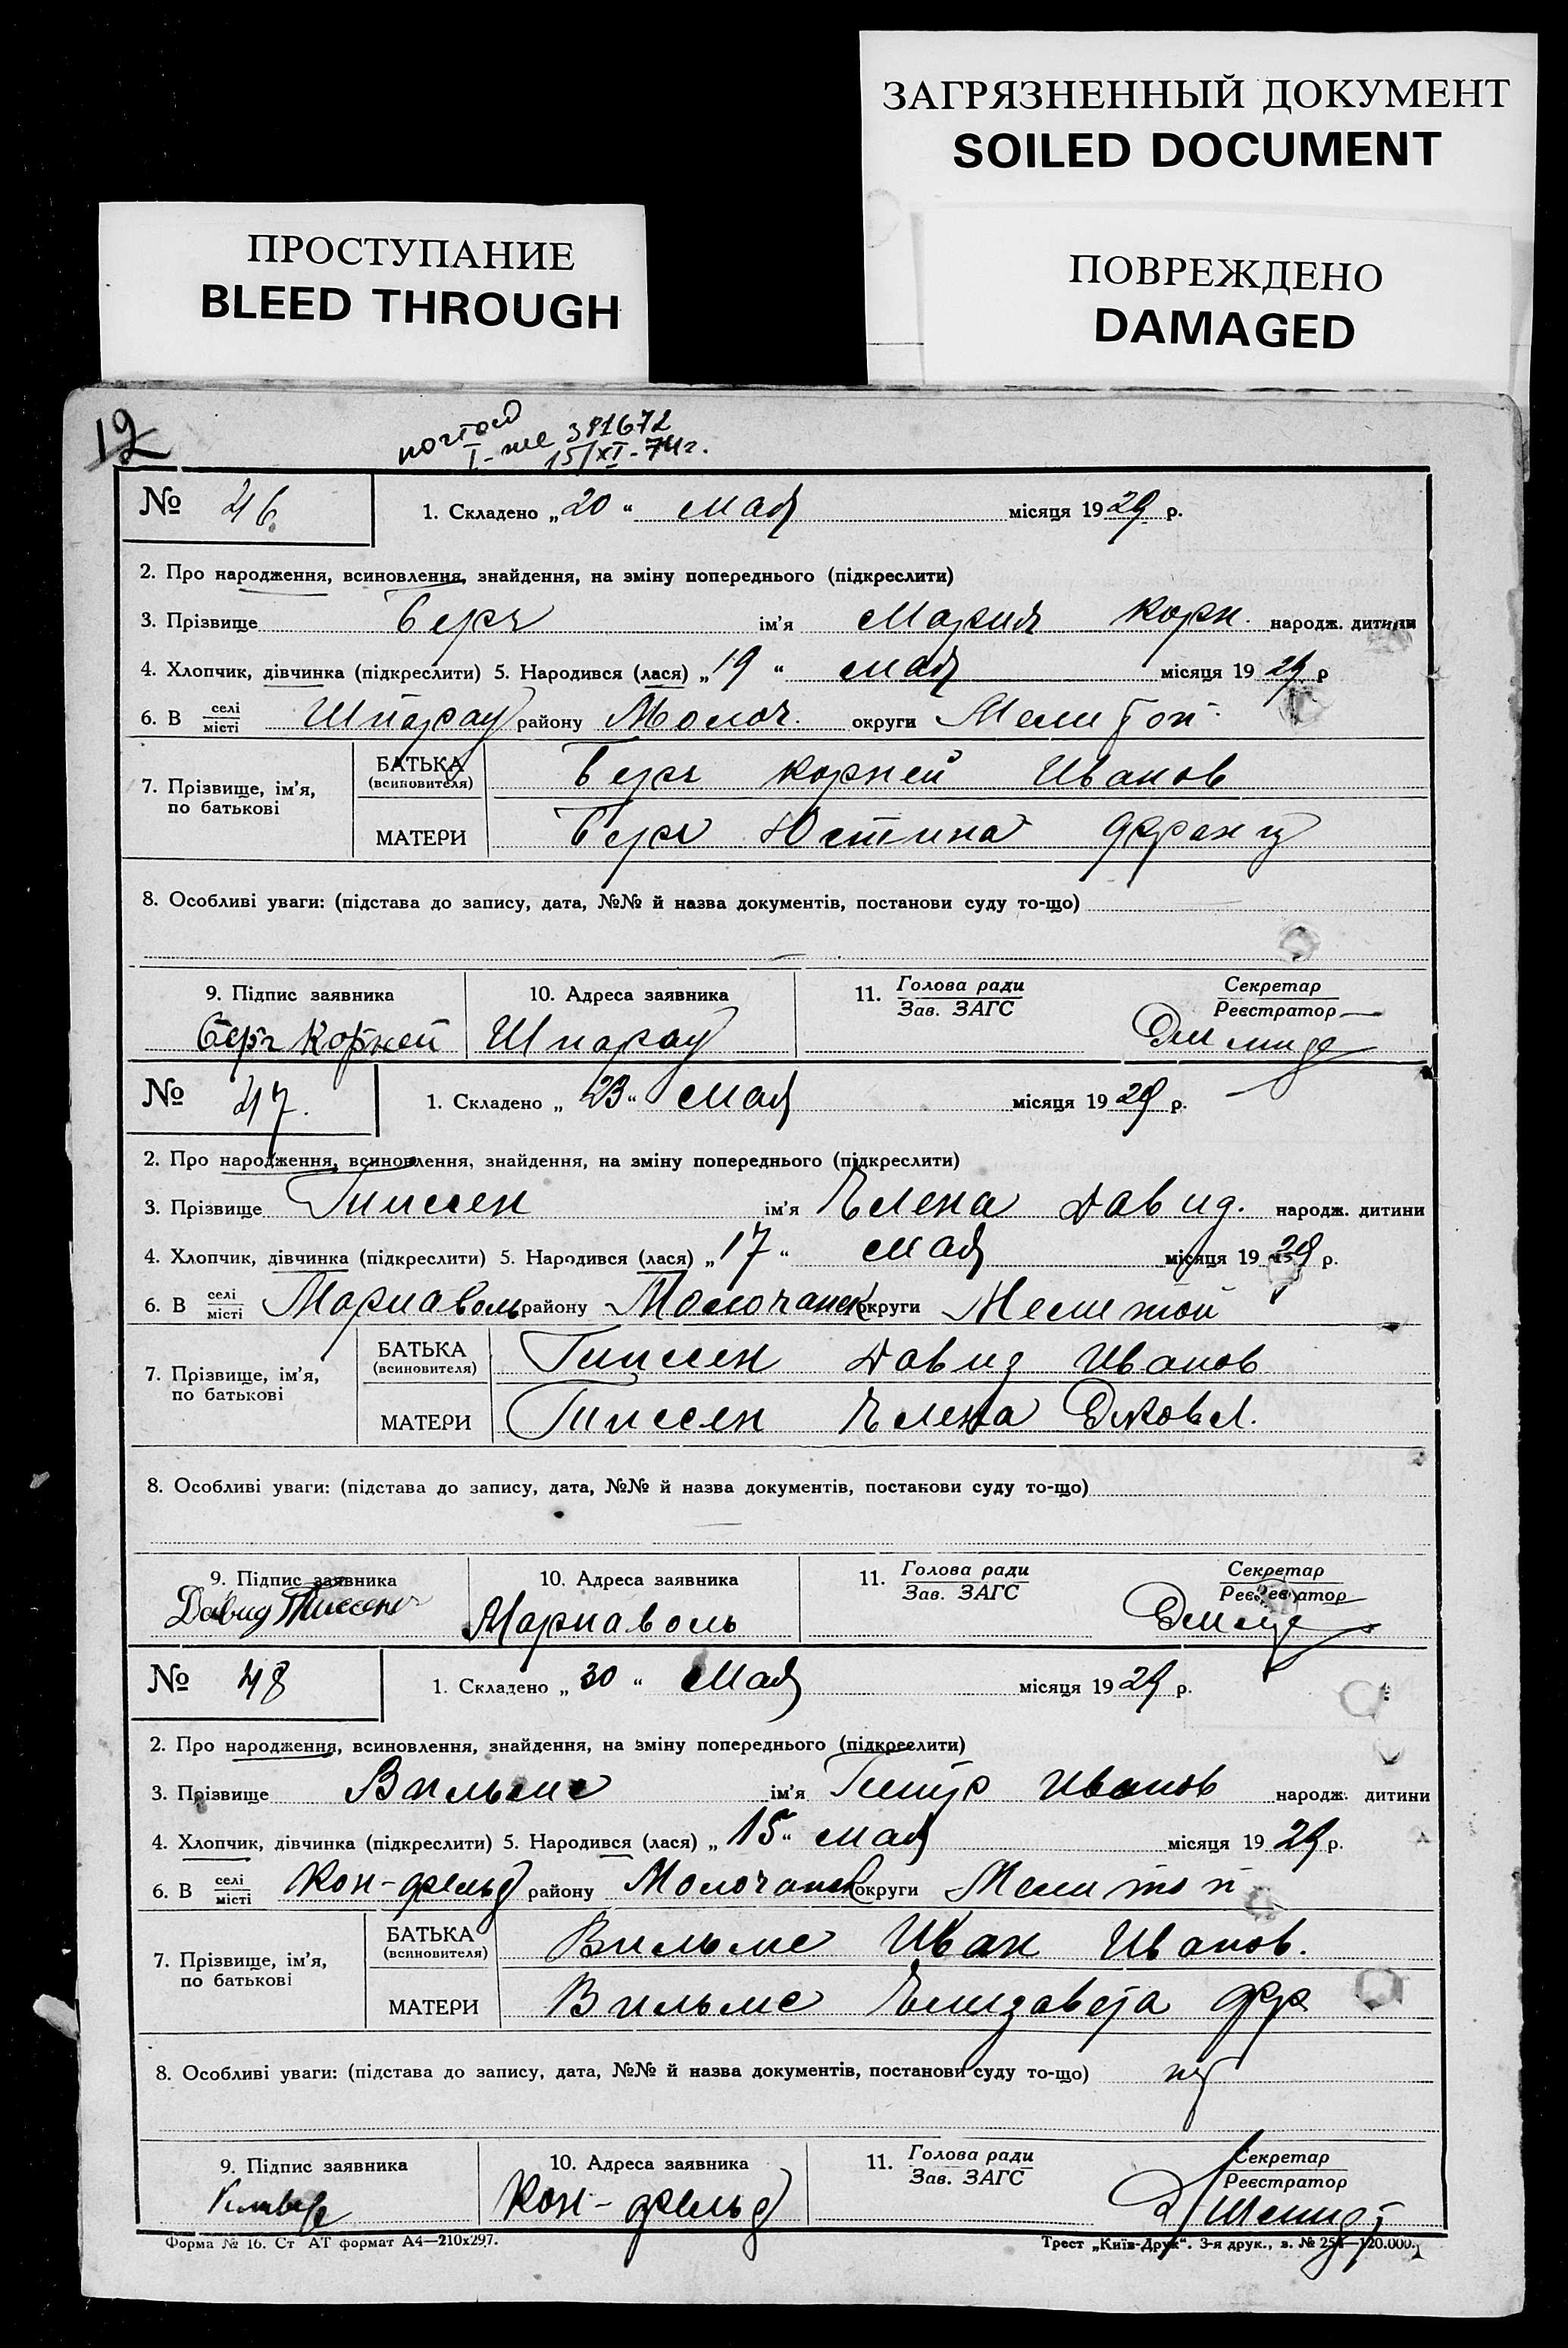 ЗАГРЯЗНЕННЫЙ ДОКУМЕНТ
SOILED DOCUMENT
ПРОСТУПАНИЕ
BLEED THROUGH
ПОВРЕЖДЕНО
DAMAGED
12
381672
15/XI-74г.
№ 46. 1. Складено „20“ мая місяця 1929 р.
2. Про народження, всиновлення, знайдення, на зміну попереднього (підкреслити)
3. Прізвище Берг ім'я Мария Корн. народж. дитини
4. Хлопчик, дівчинка (підкреслити) 5. Народився (лася) „19“ мая місяця 1929 р
6. В селі/місті Шпарау району Молоч. округи Мелитоп.
7. Прізвище, ім'я, по батькові
БАТЬКА (всиновителя) Берг Корней Иванов
МАТЕРИ Берг Юстина Франц
8. Особливі уваги: (підстава до запису, дата, №№ й назва документів, постанови суду то-що)
9. Підпис заявника 10. Адреса заявника 11. Голова ради/Зав. ЗАГС Секретар/Реєстратор
Берг Корней Шпарау
№ 47. 1. Складено „23“ мая місяця 1929 р.
2. Про народження, всиновлення, знайдення, на зміну попереднього (підкреслити)
3. Прізвище Тиссен ім'я Елена Давид. народж. дитини
4. Хлопчик, дівчинка (підкреслити) 5. Народився (лася) „17“ мая місяця 1929 р.
6. В селі/місті Мариаволь району Молочанск округи Мелитоп
7. Прізвище, ім'я, по батькові
БАТЬКА (всиновителя) Тиссен Давид Иванов
МАТЕРИ Тиссен Елена Яковл.
8. Особливі уваги: (підстава до запису, дата, №№ й назва документів, постанови суду то-що)
9. Підпис заявника 10. Адреса заявника 11. Голова ради/Зав. ЗАГС Секретар/Реєстратор
Давид Тиссен Мариаволь
№ 48 1. Складено „30“ мая місяця 1929 р.
2. Про народження, всиновлення, знайдення, на зміну попереднього (підкреслити)
3. Прізвище Вильмс ім'я Иванов народж. дитини
4. Хлопчик, дівчинка (підкреслити) 5. Народився (лася) „15“ мая місяця 1929 р.
6. В селі/місті Кон-фельд району Молочанск округи Мелитоп
7. Прізвище, ім'я, по батькові
БАТЬКА (всиновителя) Вильмс Иван Иванов.
МАТЕРИ Вильмс Елизавета
8. Особливі уваги: (підстава до запису, дата, №№ й назва документів, постанови суду то-що)
9. Підпис заявника 10. Адреса заявника 11. Голова ради/Зав. ЗАГС Секретар/Реєстратор
Кон-фельд
Форма № 16. Ст АТ формат А4—210х297. Трест „Київ-Друк“. 3-я друк., з. №